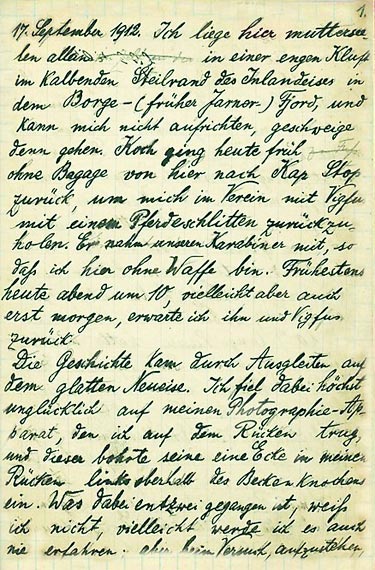 1.
17. September 1912. Ich liege hier muttersee
len allein in einer engen Kluft
im kalbenden Steilrand des Inlandeises in
dem Borge-(früher Jarner-) Fjord, und
kann mich nicht aufrichten, geschweige
denn gehen. Koch ging heute früh
ohne Bagage von hier nach Kap Stop
zurück um mich im Verein mit Vigfus
mit einem Pferdeschlitten zurückzu-
holen. Er nahm unseren Karabiner mit, so
daß ich hier ohne Waffe bin. Frühestens
heute abend um 10, vielleicht aber auch
erst morgen, erwarte ich ihn und Vigfus
zurück.
Die Geschichte kam durch Ausgleiten auf
dem glatten Neueise. Ich fiel dabei höchst
unglücklich auf meinen Photographie-Ap-
parat, den ich auf dem Rücken trug,
und dieser bohrte seine eine Ecke in meinen
Rücken links oberhalb des Beckenknochens
ein. Was dabei entzwei gegangen ist, weiß
ich nicht, vielleicht werde ich es auch
nie erfahren. aber beim Versuch, aufzustehen,